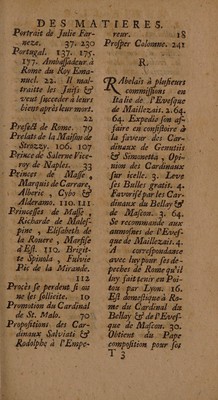 DES MATIERES.
Portrait de Julie Far-
neze. 37. 230
Portugal. 137. 175.
177. Ambassadeur à
Rome du Roy Ema-
nuel. 22. Il mal-
traitte les Juifs &
veut succeder à leurs
biens après leur mort.
22
Profect de Rome. 79
Prelats de la Maison de
Strozzy. 106. 107
Prince de Salerne Vice-
roy de Naples. 33
Princes de Masse,
Marquis de Carrare,
Alberic, Cybo &
Alderamo. 110. 111
Princesses de Masse,
Richarde de Malas-
pine, Elisabeth de
la Rouere, Marfise
d'Est. 110. Briget-
te Spinola, Fulvie
Pic de la Mirande.
111
Procès se perdent si on
ne les sollicite. 10
Promotion du Cardinal
de St. Malo. 70
Propositions des Car-
dinaux Salviati &
Rodolphe à l'Empe-
reur. 18
Prosper Colomne. 241
R.
Rabelais à plusieurs
commissions en
Italie de l'Evesque
de Maillezais. 2. 64.
64. Expedie son af-
faire en consistoire à
la faveur des Car-
dinaux de Genutiis
& Simonetta, Opi-
nion des Cardinaux
sur icelle. 3. Leve
ses Bulles gratis. 4.
Favorisé par les Car-
dinaux du Bellay &
de Mascon. 3. 64.
Se recommande aux
aumosnes de l'Eves-
que de Maillezais. 4.
A correspondance
avec luy pour les de-
peches de Rome qu'il
luy fait tenir en Poi-
tou par Lyon. 16.
Est domestique à Ro-
me du Cardinal du
Bellay & de l'Eves-
que de Mascon. 30.
Obtient du Pape
composition pour ses
T 3